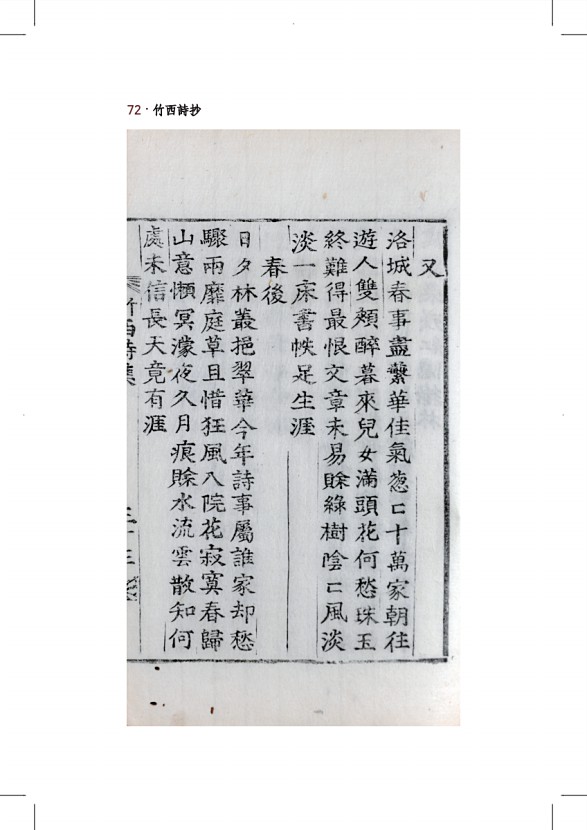 72 · 竹西詩抄
又
洛城春事盡蘩華佳氣葱匸十萬家朝往
遊人雙頰醉暮來兒女滿頭花何愁珠玉
終難得最恨文章未易賖綠樹陰匸風淡
淡一床書帙足生涯
春後
日夕林叢挹翠華今年詩事屬誰家却愁
驟雨靡庭草且惜狂風入院花寂寞春歸
山意懶冥濛夜久月痕賖水流雲散知何
處未信長天竟有涯
竹西詩集
三十三